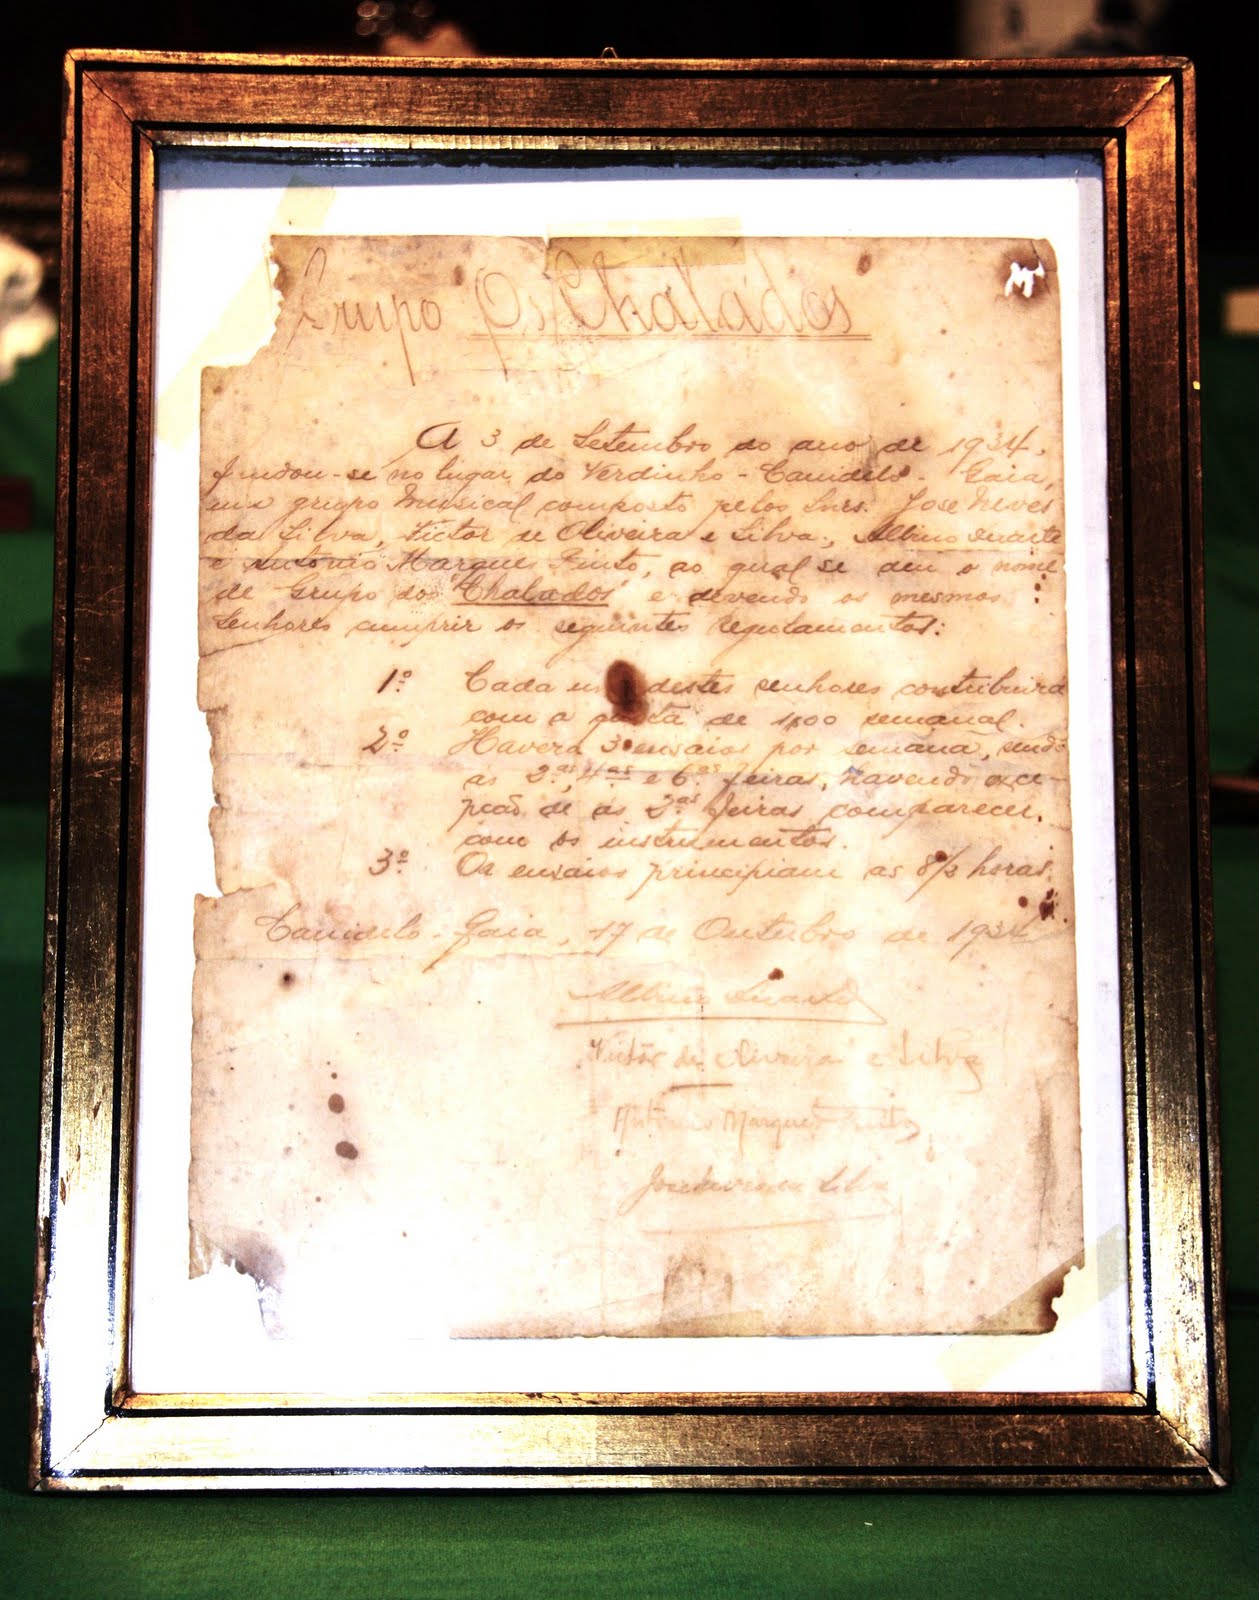 Grupo Os Chalados
A 3 de Setembro do ano de 1934,
fundou-se no lugar do Verdinho - Canidelo - Gaia,
um grupo Musical composto pelos Snrs. José Neves
da Silva, Victor de Oliveira e Silva, Albino Duarte
e António Marques Pinto, ao qual se deu o nome
de Grupo dos "Chalados" e devendo os mesmos
Senhores cumprir os seguintes regulamentos:
1º Cada um destes senhores contribuira
com a quota de 1$00 semanal.
2º Havera 3 ensaios por semana, sendo
as 2.as, 4.as e 6.as feiras, havendo exce-
pção de ás 2.as feiras comparecer,
com os instrumentos.
3º Os ensaios principiam as 8½ horas
Canidelo - Gaia, 17 de Outubro de 1934
Albino Duarte
Victor de Oliveira e Silva
António Marques Pinto
José Neves da Silva